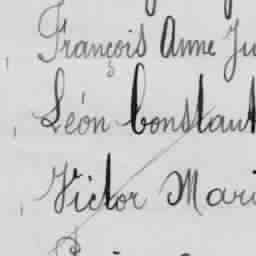 François Anne Ju
Léon Constant
Victor Mari